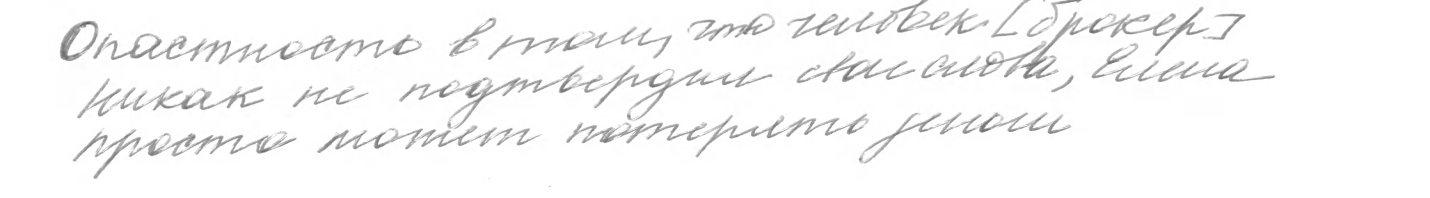 Опастность в том, что человек [брокер]
никак не подтвердил свои слова, Елена
просто может потерять деньги